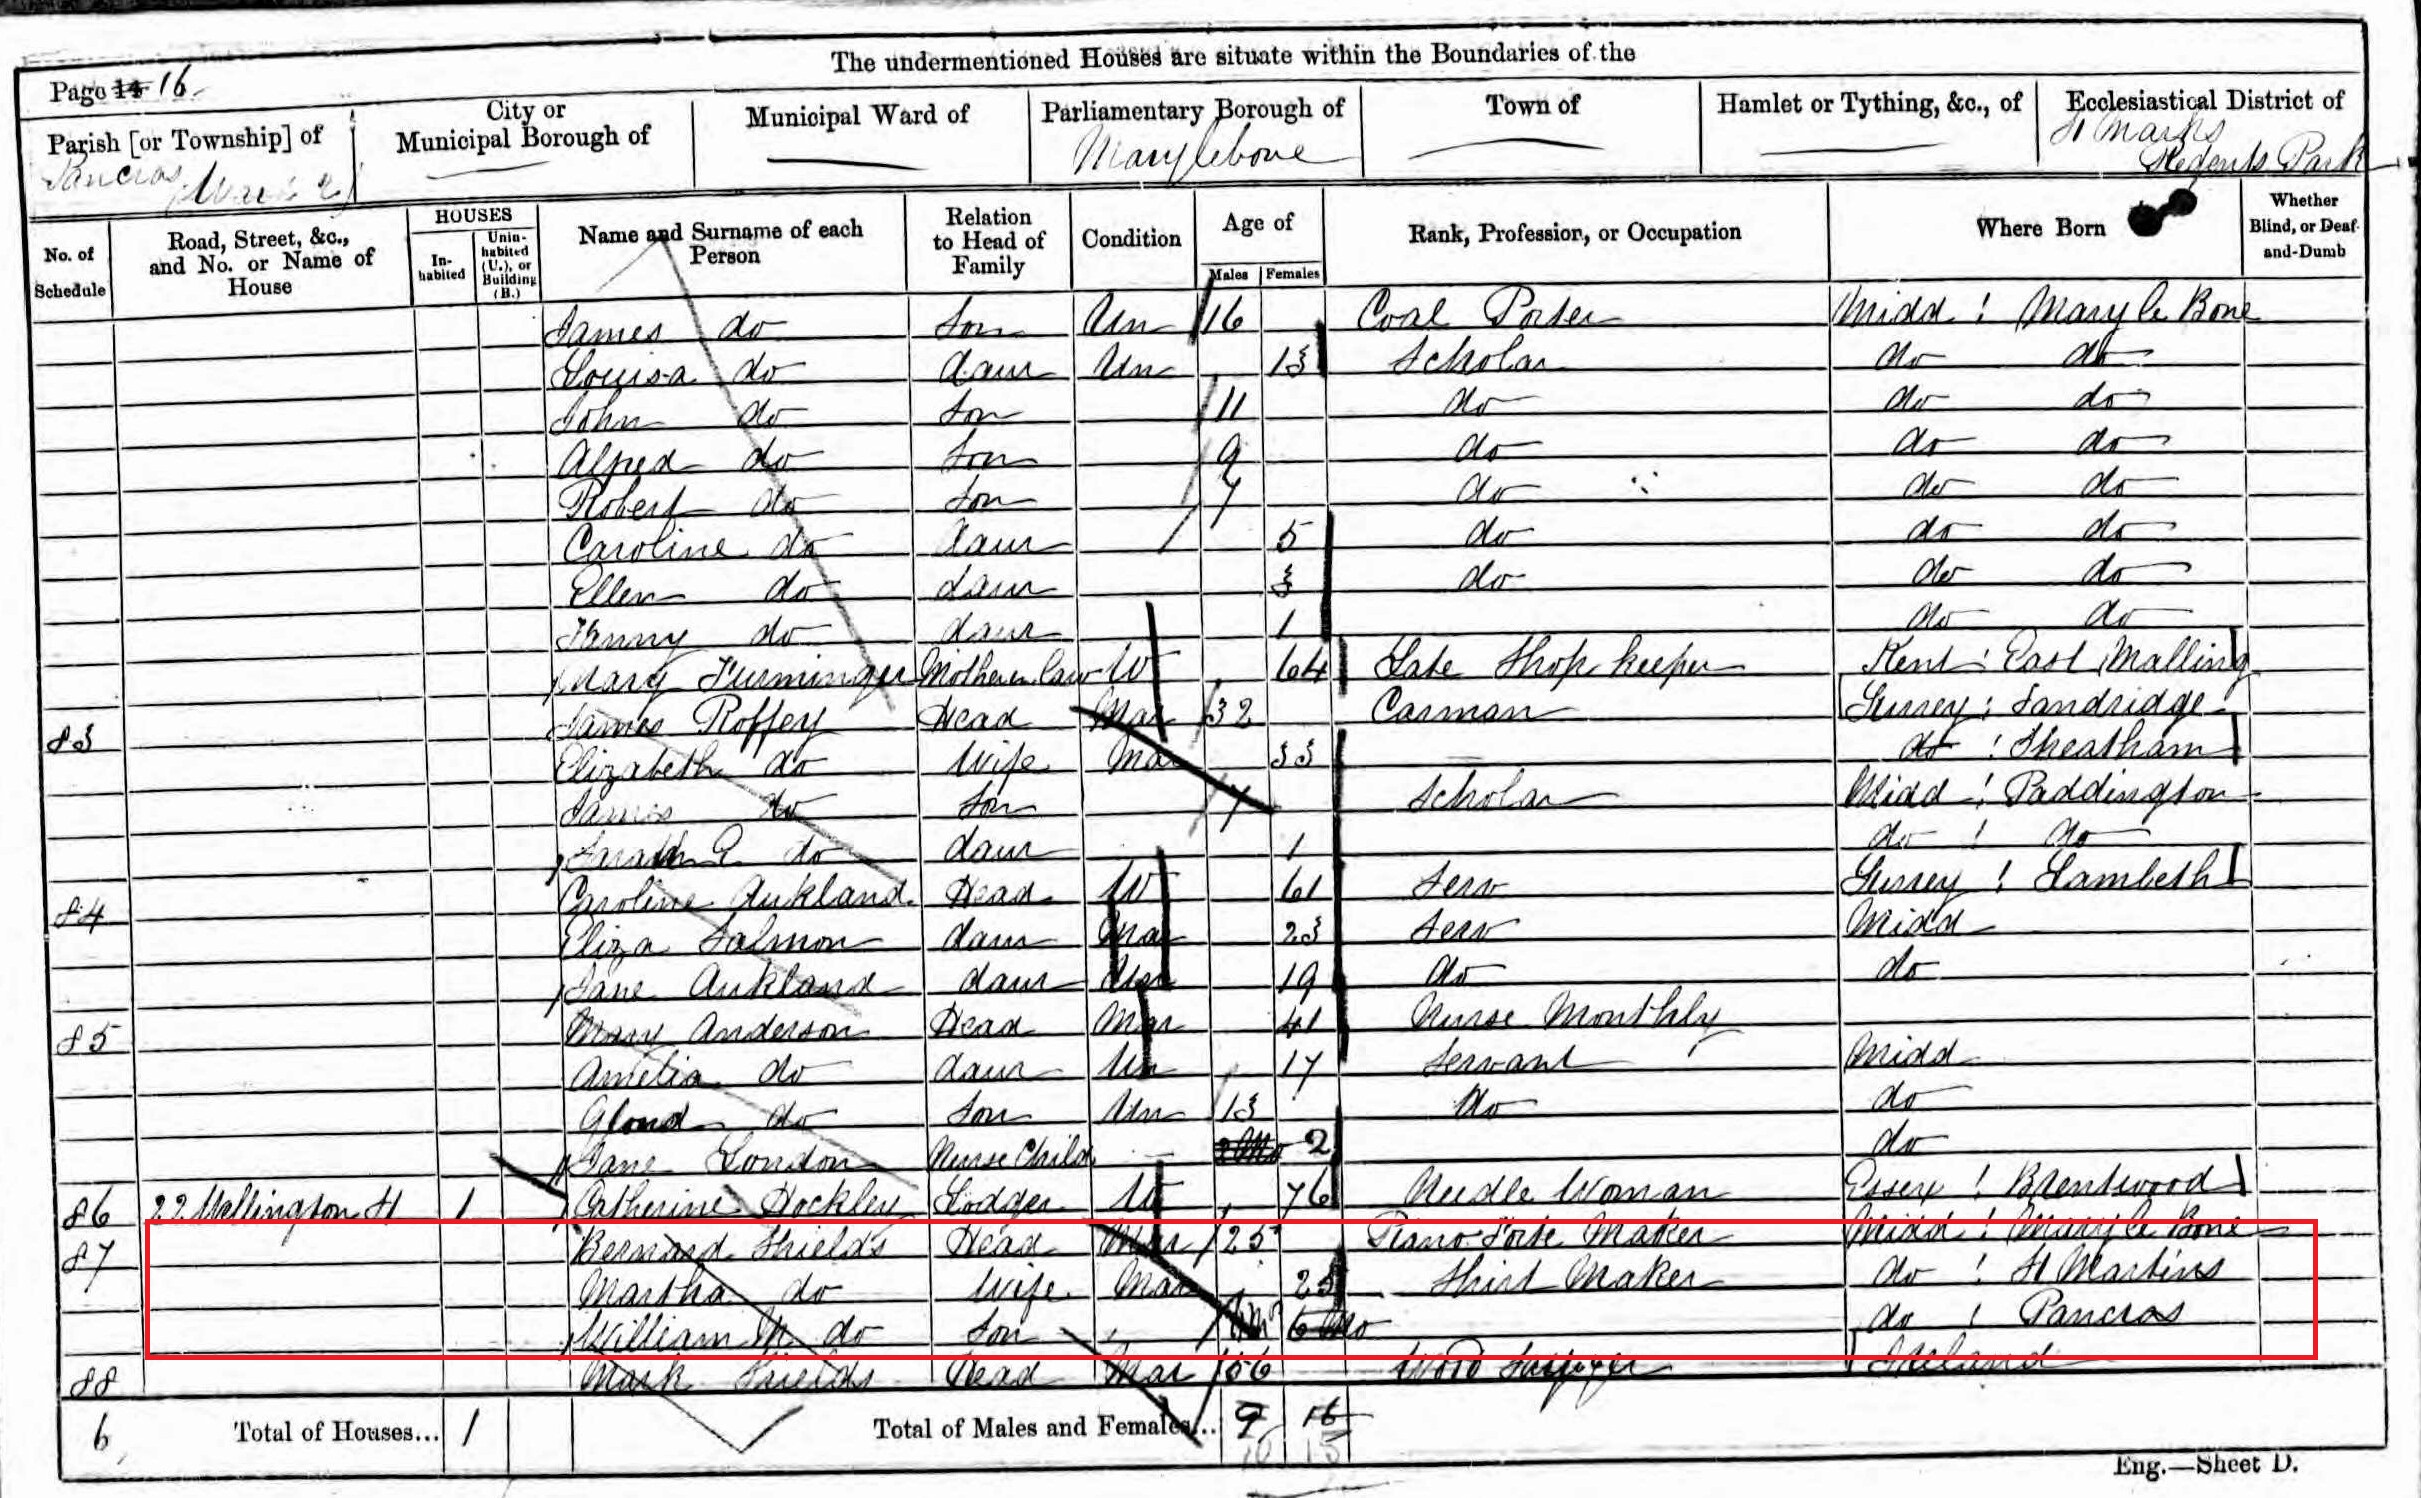 The undermentioned Houses are situate within the Boundaries of the
Page 14 16
Parish [or Township] of
Pancras
City or
Municipal Borough of
Municipal Ward of
Parliamentary Borough of
Marylebone
Town of
Hamlet or Tything, &c., of
Ecclesiastical District of
St Marks
Regents Park
No. of
Schedule
Road, Street, &c.,
and No. or Name of
House
HOUSES
In-
habited
Unin-
habited
(U.), or
Building
(B.)
Name and Surname of each
Person
Relation
to Head of
Family
Condition
Age of
Males Females
Rank, Profession, or Occupation
Where Born
Whether
Blind, or Deaf-
and-Dumb
James do Son Un 16 Coal Porter Midd : Mary le Bone
Louisa do daur Un 13 Scholar do do
John do Son 11 do do do
Alfred do Son 9 do do do
Robert do Son 7 do do do
Caroline do daur 5 do do do
Ellen do daur 3 do do do
Fanny do daur 1 do do
Mary Furminger Mother in law W 64 Late Shop keeper Kent : East Malling
83 James Roffey Head Mar 32 Carman Surrey : Tandridge
Elizabeth do Wife Mar 33 do :
James do Son 7 Scholar Midd : Paddington
Sarah E do daur 1 do : do
84 Caroline Aukland Head W 61 Serv Surrey : Lambeth
Eliza Salmon daur Mar 23 Serv Midd
Jane Aukland daur Un 19 do do
85 Mary Anderson Head Mar 41 Nurse Monthly
Amelia do daur Un 17 Servant Midd
do Son Un 13 do do
Jane London Nurse Child 2 do
86 22 Wellington St 1 Catherine Hockley Lodger W 76 Needle Woman Essex : Brentwood
87 Bernard Shields Head Mar 25 Piano Forte Maker Midd : Mary le Bone
Martha do Wife Mar 25 Shirt Maker do : St Martins
William M do Son 6 Mo do : Pancras
88 Mark Shields Head Mar 56 Ireland
6 Total of Houses... 1 Total of Males and Females... 9 16
10 15
Eng.—Sheet D.